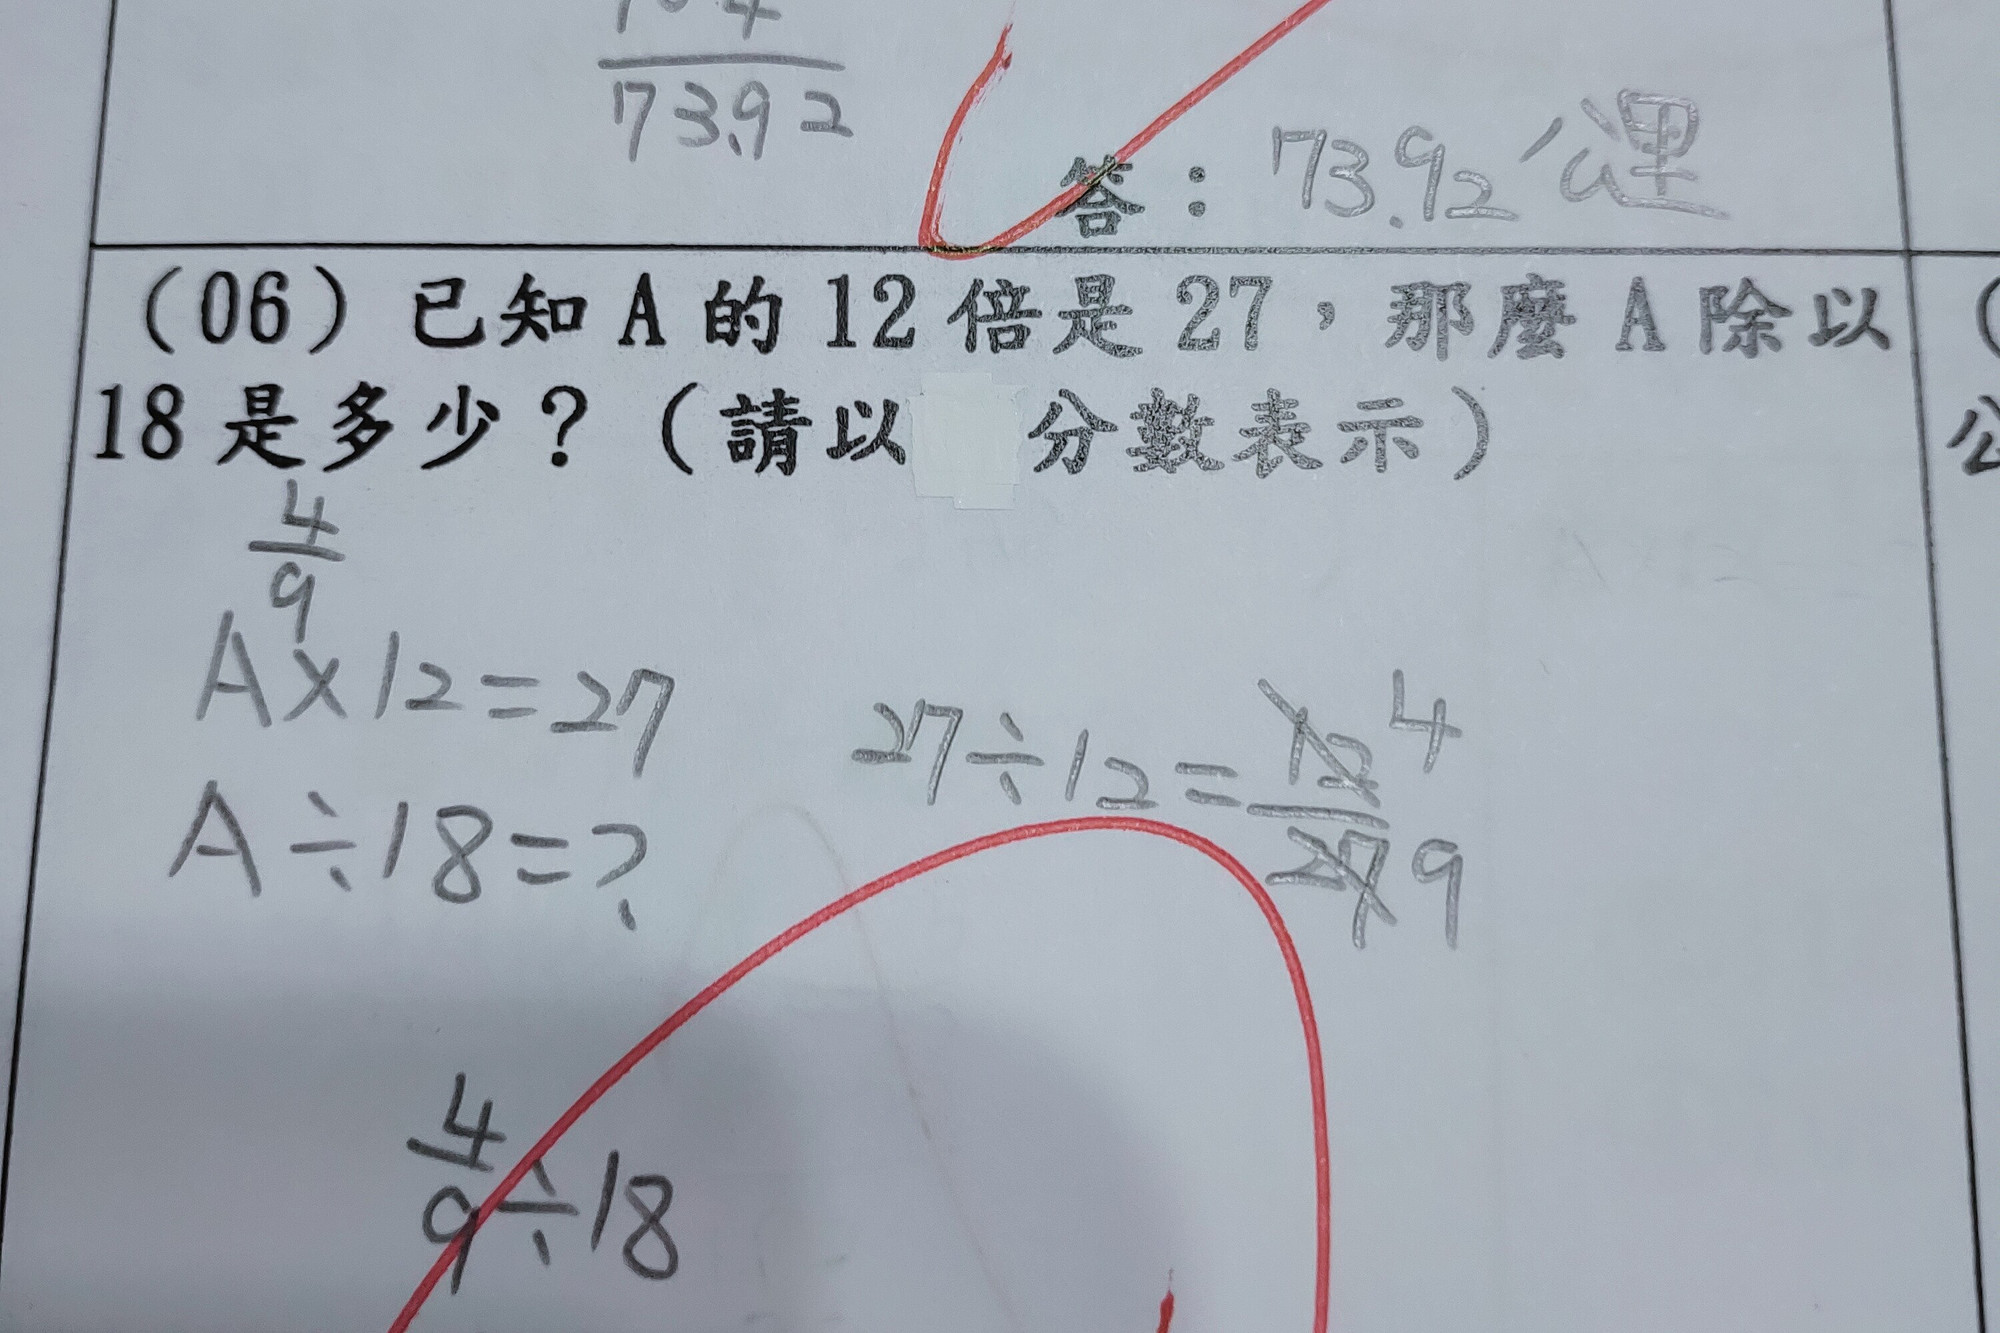 73.92
答：73.92公里
(06)已知A的12倍是27，那麼A除以
18是多少？(請以 分數表示)
4
9
A×12=27
27÷12=12/27 4/9
A÷18=?
4/9÷18